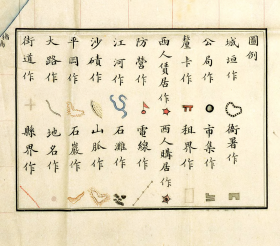 圖例
城垣作 衙署作
公局作 市集作
釐卡作 租界作
西人賃居作 西人購居作
防營作 電線作
江河作 石灘作
沙磧作 山脈作
平岡作 石巖作
大路作 地名作
街道作 縣界作